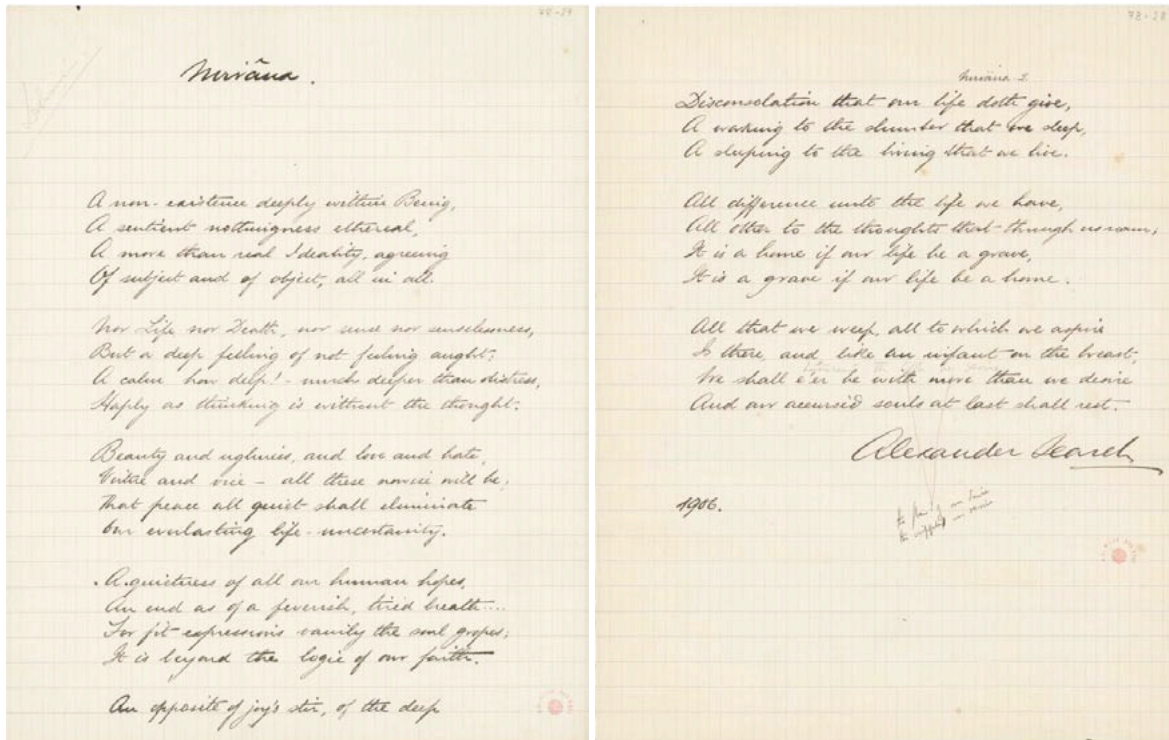 78-27
Nirvâna.
A non-existence deeply within Being,
A sentient nothingness ethereal,
A more than real Ideality, agreeing
Of subject and of object, all in all.
Nor Life nor Death, nor sense nor senselessness,
But a deep feeling of not feeling aught;
A calm how deep! - much deeper than distress,
Haply as thinking is without the thought.
Beauty and ugliness, and love and hate,
Virtue and vice - all these nowise will be;
That peace all quiet shall eliminate
Our everlasting life-uncertainty.
A quietness of all our human hopes,
An end as of a feverish, tired breath....
For fit expressions vainly the soul gropes;
It is beyond the logic of our faith.
An opposite of joy's stir, of the deep
78-28
Nirvâna 2.
Disconsolation that our life doth give,
A waking to the slumber that we sleep,
A sleeping to the living that we live.
All difference unto the life we have,
All other to the thoughts that through us roam;
It is a home if our life be a grave,
It is a grave if our life be a home.
All that we weep, all to which we aspire
Is there, and like an infant on the breast,
We shall e'er be with more than we desire
And our accursèd souls at last shall rest.
Alexander Search
1906.